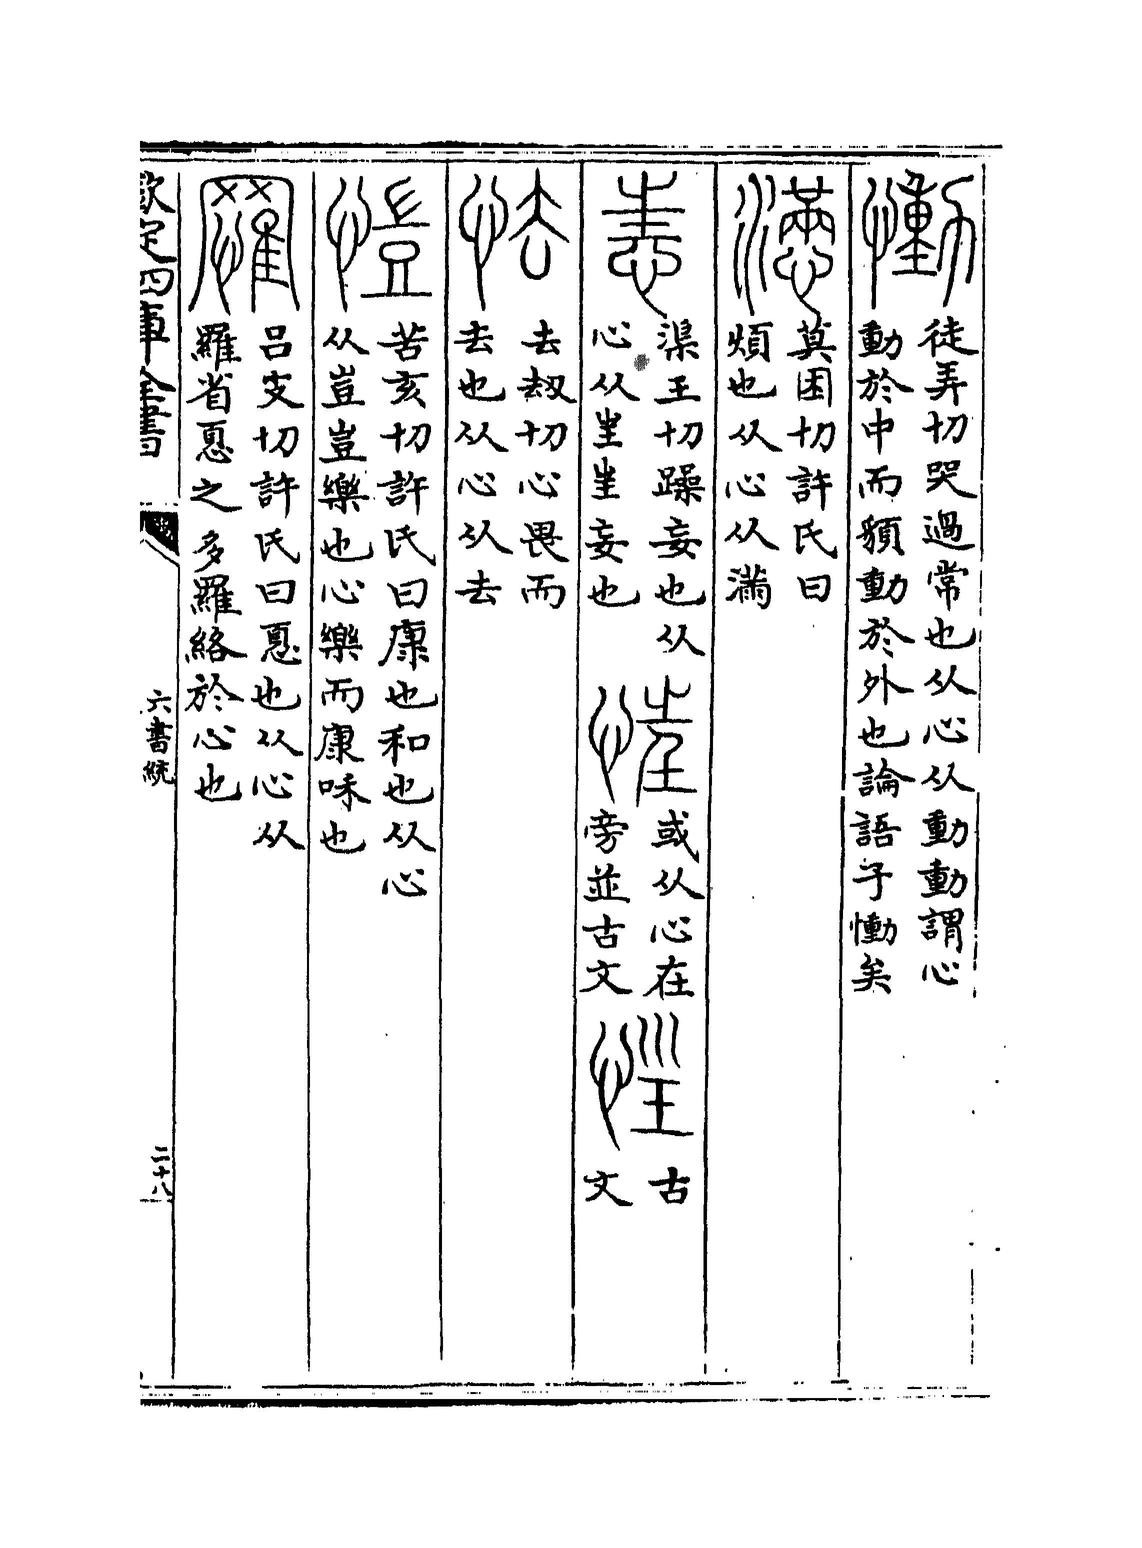 慟
徒弄切哭過常也从心从動動謂心
動於中而䫉動於外也論語子慟矣
懣
莫困切許氏曰
煩也从心从滿
渠王切躁妄也从
心从㞷㞷妄也
或从心在
旁並古文
古
文
怯
去劫切心畏而
去也从心从去
愷
苦亥切許氏曰康也和也从心
从豈豈樂也心樂而康咊也
罹
吕支切許氏曰㥑也从心从
羅省㥑之多羅絡於心也
欽定四庫全書
六書統
二十八